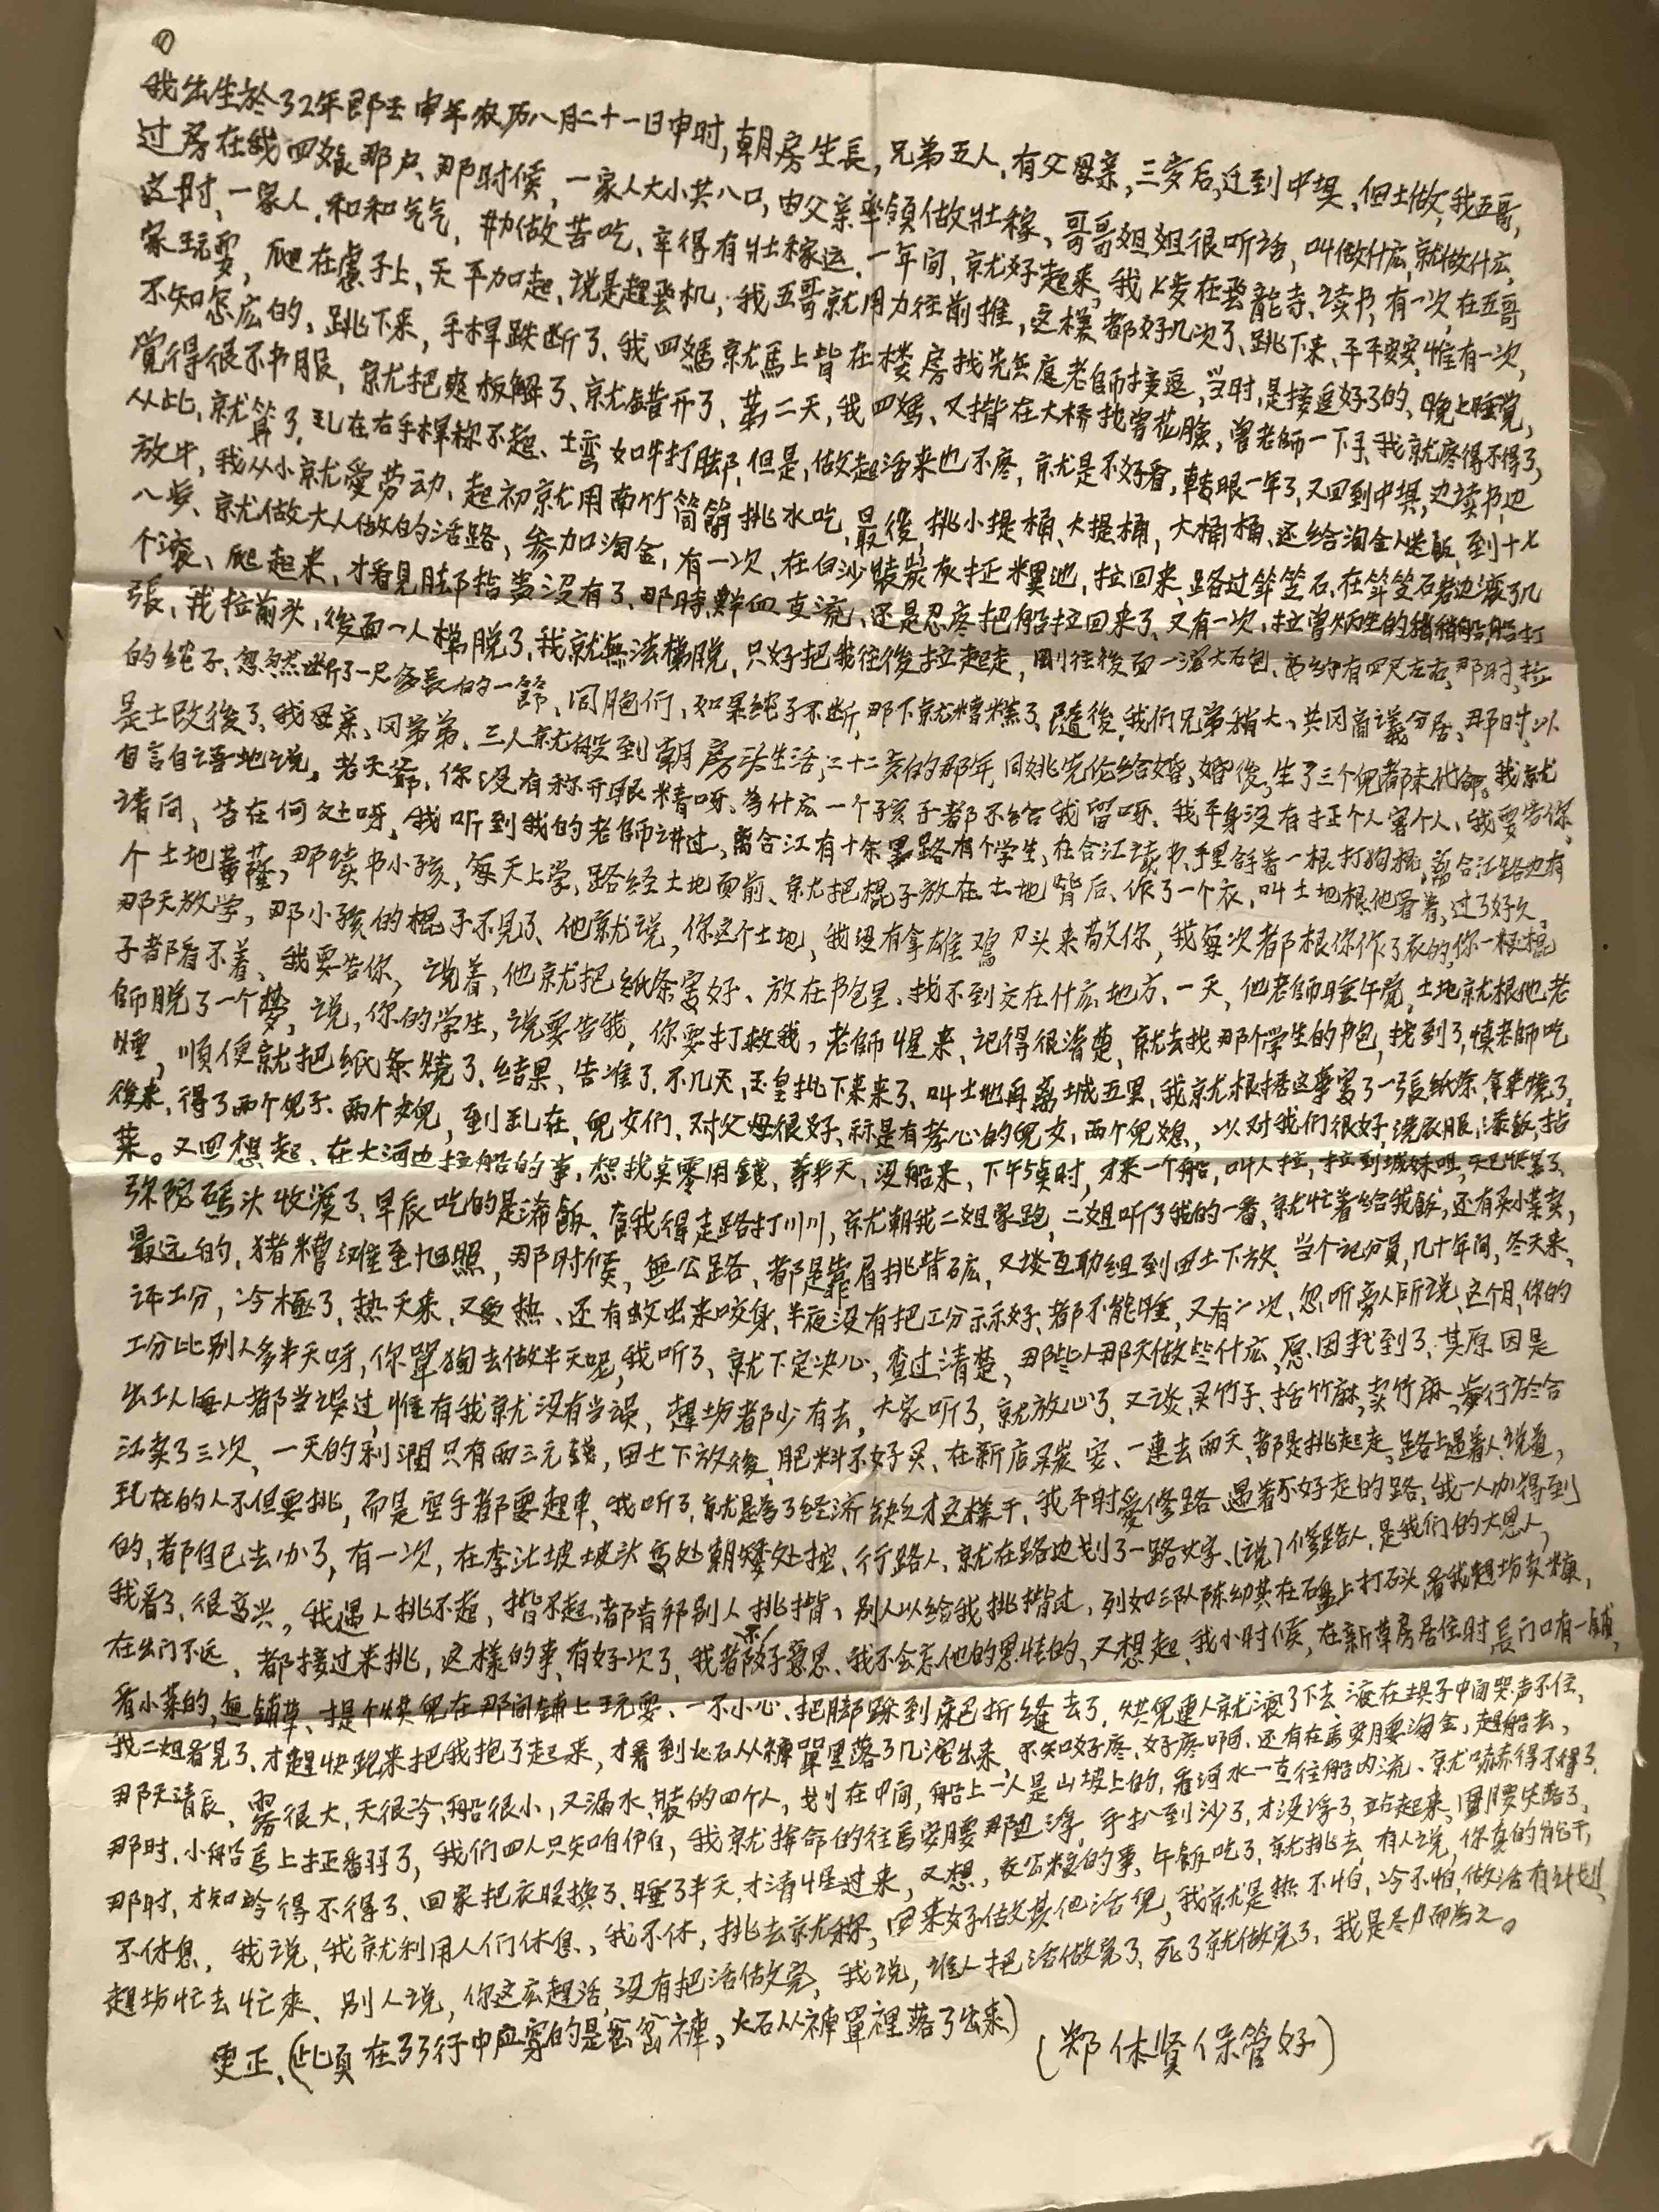 ①
我出生於32年即壬申年农历八月二十一日申时,朝房生長,兄弟五人,有父母亲,三岁后,迁到中垻、但土做,我五哥,
过房在我四娘那户、那时候,一家人大小共八口,由父亲率領做壮稼、哥哥姐姐很听话,叫做什広,就做什広,
这时、一家人,和和气气,勤做苦吃、幸得有壮稼运,一年间,就好起来,我 岁在雲龍寺、读书,有一次,在五哥
家玩耍,爬在 子上,天平加起、说是起飞机,我五哥就用力往前推,这様都好几次了、跳下来、平平安安,惟有一次,
不知怎広的、跳下来,手桿跌断了、我四媽就馬上背在楼房找先 庭老師接逗,当时,是接逗好了的、晚上睡觉,
觉得很不书服,就把夾板解了、就錯开了、第二天,我四媽、又揹在大桥找曾花臉,曾老師一下手、我就疼得不得了,
从此、就算了,現在右手桿称不起、 弯如牛打脚,但是,做起活来也不疼,就是不好看,轉眼一年了,又回到中垻,边读书边
放牛,我从小就愛劳动、起初就用南竹筒筒挑水吃,最後,挑小提桶、大提桶,大桶桶、还给淘金人送飯,到十七
八岁、就做大人做的活路,参加淘金,有一次、在白沙装炭灰扯糞池,拉回来,路过斗笠石、在斗笠石岩边滚了几
个滚、爬起来,才看見脚指當沒有了、那時,鮮血支流,还是忍疼把船拉回来了、又有一次,拉曾炳生的猪稍船,船打
張,我拉前头,後面一人梯脱了,我就無法梯脱,只好把我往後拉起走,剛往後面一 大石包、高约有四尺左右,那时,拉
的绳子、忽然断了一尺多長的一節、同胞们,如果绳子不断,那下就糟糕了、隨後,我们兄弟稍大、共同商議分居、那时,以
是土改後了、我母亲、同弟弟、三人就般到朝房头生活,二十二岁的那年,同姚先伦结婚,婚後,生了三个兒都未 命。我就
自言自语地说,老天爺,你没有称开眼精呀、為什広一个孩子都不给我留呀、我平身没有扯个人害个人、我要告你,
请问、告在何处呀、我听到我的老師讲过,离合江有十余里路有个学生,在合江读书,手里 着一根打狗棍,离合江路边有
个土地菩薩,那读书小孩,每天上学,路经土地面前、就把棍子放在土地背后、作了一个衣、叫土地根他看着,过了好久,
那天放学,那小孩的棍子不見了、他就说,你这个土地,我没有拿雄鸡刀头来敬你,我每次都根你作了衣的,你一根棍
子都看不着、我要告你,说着,他就把纸条寫好、放在书包里、找不到交在什広地方、一天,他老師睡午觉,土地就根他老
師脱了一个夢,说,你的学生,说要告我,你要打救我,老師惺来、记得很清楚、就去找那个学生的书包,找到了,慎老師吃
烟,順便就把纸条烧了、结果、告准了,不几天,玉皇 下来来了、叫土地再离城五里、我就根据这事寫了一張纸条,拿来燒了,
後来,得了两个兒子、两个女兒,到現在、兒女们、对父母很好、称是有孝心的兒女,两个兒媳,以对我们很好,洗衣服,添飯,拈
菜。又回想起、在大河边拉船的事,想找点零用錢,等半天,没船来,下午5点时,才来一个船,叫人拉,拉到城妹咀,天已 黑了,
弥陀碼头收渡了、早辰吃的是浠飯、 我得走路打川川,就朝我二姐家跑,二姐听了我的一番,就忙着给我飯,还有买小菜卖,
最远的,猪槽滩至旭照,那时候,無公路、都是靠眉挑背砿,又談互助组到田土下放,当个记分員,几十年间,冬天来、
评工分,冷極了,热天来、又受热、还有蚊虫来咬身、半夜没有把工分示示好、都不能睡,又有一次、忽听旁人所说、这个月、你的
工分比别人多半天呀,你單獨去做半天呢,我听了、就下定决心,查过清楚,那些人那天做些什広、愿因找到了,其原因是
出工人每人都当误过,惟有我就没有当误、趕场都少有去,大家听了,就放心了,又谈,买竹子、括竹蔴,卖竹蔴,步行於合
江卖了三次、一天的利潤只有两三元錢,田土下放後,肥料不好买、在新店买炭 、一連去两天,都是挑起走,路上遇着人说道,
現在的人不但要挑,而是空手都要趕車、我听了,就是為了经济缺乏才这様干,我平时愛修路,遇着不好走的路,我一人办得到
的,都自己去办了,有一次,在李氿坡坡头高处朝矮处挖、行路人,就在路边划了一路字、(说)修路人,是我们的大恩人,
我看了,很高兴。我遇人挑不起,揹不起,都肯邦别人挑揹,别人以给我挑揹过,列如三队陈幼其在石盘上打石头,看我趕场卖米糠,
在出门不远、都接过来挑,这様的事、有好次了,我都不好意思、我不会忘他的恩情的,又想起,我小时候,在新草房居住时,長门口有一鋪,
看小菜的,無鋪草、提个烘兒在那间鋪上玩耍、一不小心,把脚踩到床巴折缝去了,烘兒連人就滚了下去,滚在垻子中间哭声不住,
我二姐看見了、才趕快跑来把我抱了起来,才看到火石从裤單里落了几沱出来,不知哎好疼,好疼啊、还有在馬安腰淘金,趕船去,
那天清辰、雾很大,天很冷,船很小,又漏水,装的四个人,划在中间,船上一人是山坡上的,看河水一直往船内流、就嚇得不得了,
那时、小船馬上扯番羽了,我们四人只知咱伊自,我就拚命的往馬安腰那边浮,手扒到沙了,才没浮了,站起来,圍腰失落了,
那时,才知冷得不得了、回家把衣服換了、睡了半天,才清惺过来,又想,交公粮的事、午飯吃了,就挑去,有人说,你真的能干,
不休息、我说,我就利用人们休息、我不休,挑去就称,回来好做其他活兒,我就是热不怕,冷不怕,做活有计划,
趕场忙去忙来、别人说,你这広趕活,没有把活做完,我说,谁人把活做完了,死了就做完了,我是尽力而為之。
更正、(此頁在33行中应穿的是岔岔褲,火石从褲單裡落了出来)
(郑休贤保管好)